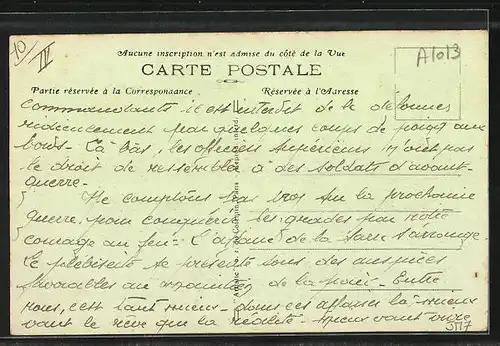 10/IV
A1013
Aucune inscription n'est admise du côté de la Vue
CARTE POSTALE
Partie réservée à la Correspondance
Réservée à l'Adresse
Commandants il est interdit de le
ridiculement par quelques coups de poing aux
Là bas, les officiers supérieurs n'ont pas
le droit de ressembler à des soldats d'avant-
guerre.
Ne comptons pas trop sur la prochaine
guerre, pour conquérir les grades par notre
courage au feu - L'affaire de la Sarre s'arrange.
Le plébiscite se présente sous des auspices
favorables au de la paix - Entre
nous, c'est tant mieux - dans ces affaires là mieux
vaut le rêve que la réalité - mieux vaut vivre
3117